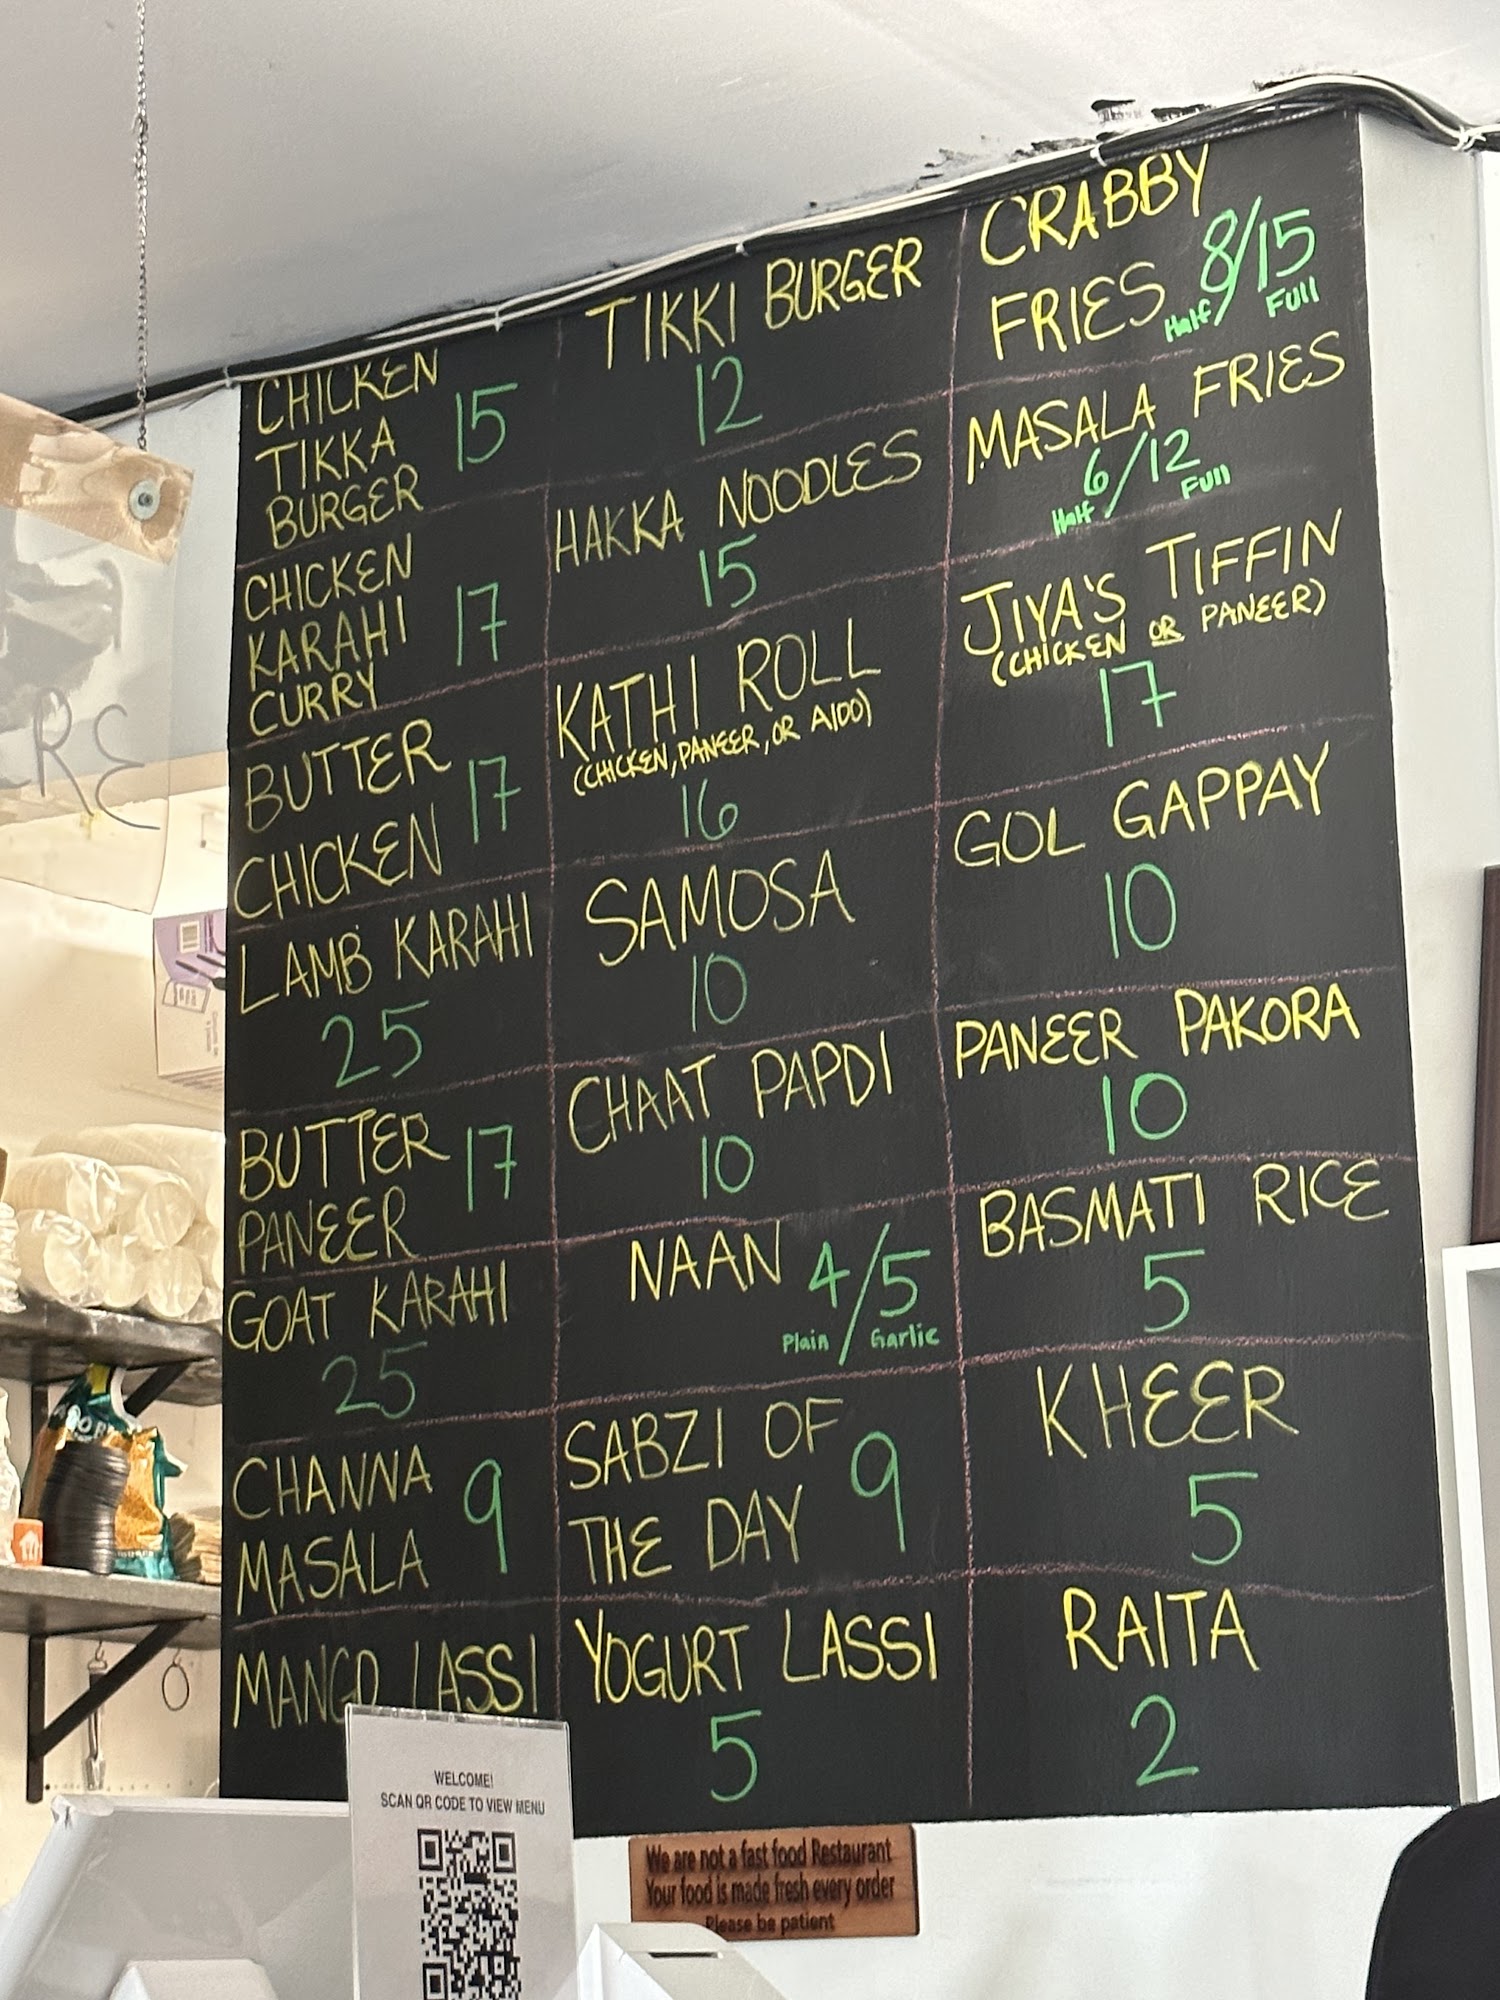 CHICKEN
TIKKA 15
BURGER
CHICKEN
KARAHI 17
CURRY
BUTTER
CHICKEN 17
LAMB KARAHI
25
BUTTER
PANEER 17
GOAT KARAHI
25
CHANNA
MASALA 9
MANGO LASSI
TIKKI BURGER
12
HAKKA NOODLES
15
KATHI ROLL
(CHICKEN, PANEER, OR ALOO)
16
SAMOSA
10
CHAAT PAPDI
10
NAAN 4/5
Plain / Garlic
SABZI OF
THE DAY 9
YOGURT LASSI
5
CRABBY
FRIES 8/15
Half / Full
MASALA FRIES
6/12
Half / Full
JIYA'S TIFFIN
(CHICKEN OR PANEER)
17
GOL GAPPAY
10
PANEER PAKORA
10
BASMATI RICE
5
KHEER
5
RAITA
2
WELCOME!
SCAN QR CODE TO VIEW MENU
We are not a fast food Restaurant
Your food is made fresh every order
Please be patient